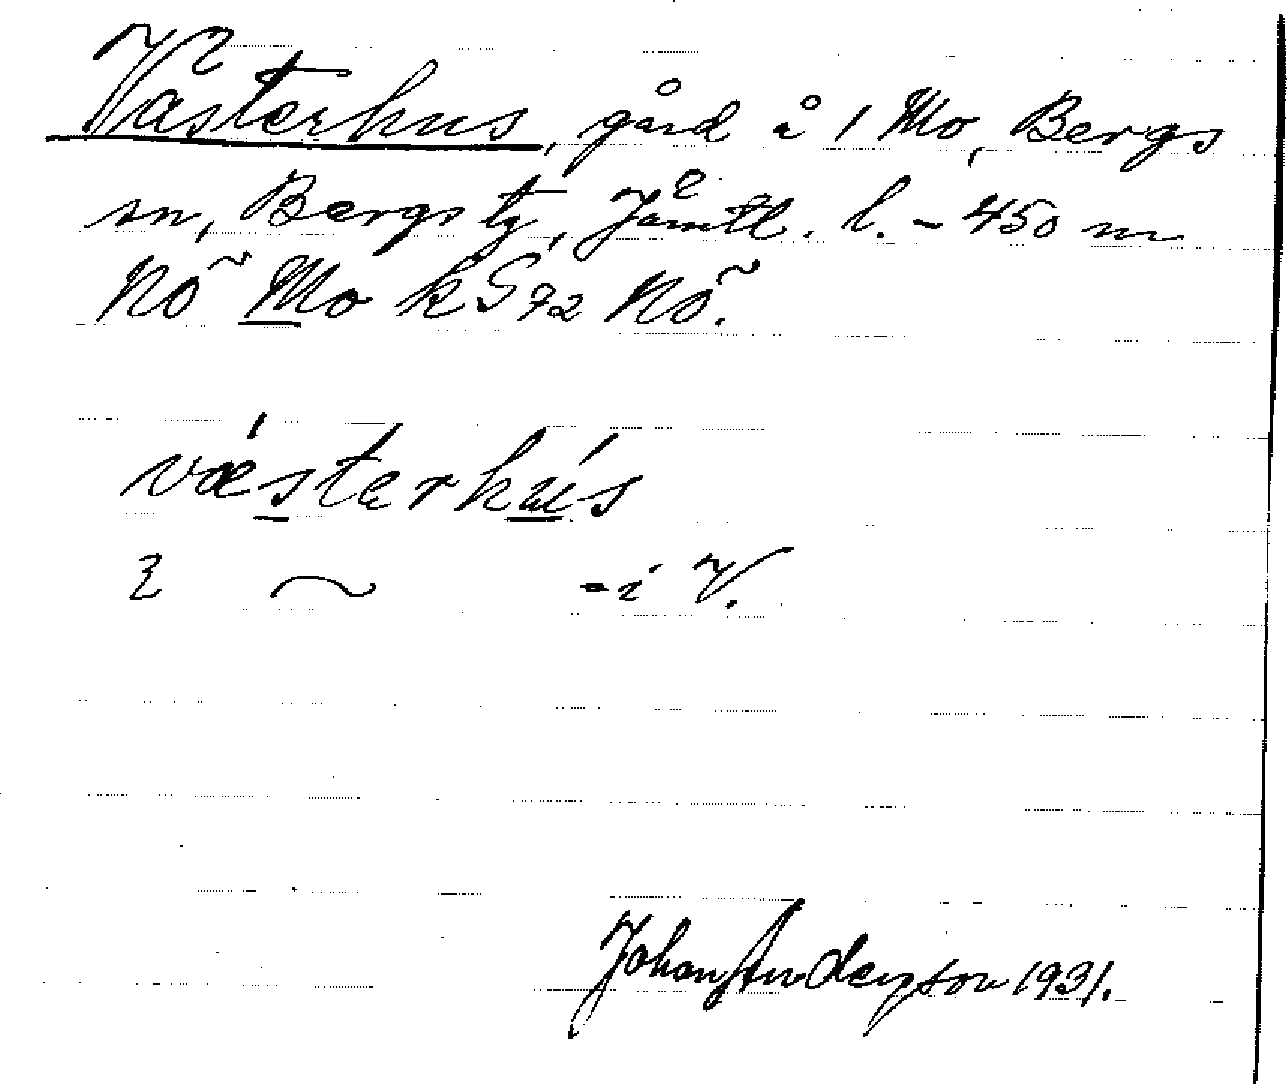 Västerhus, gård å 1 Mo, Bergs
sn, Bergs tg, Jämtl. l. - 450 m
NÖ Mo k S 72 NÖ.
vǽsterhús
2 ~ - i V.
Johan Anderson 1931.